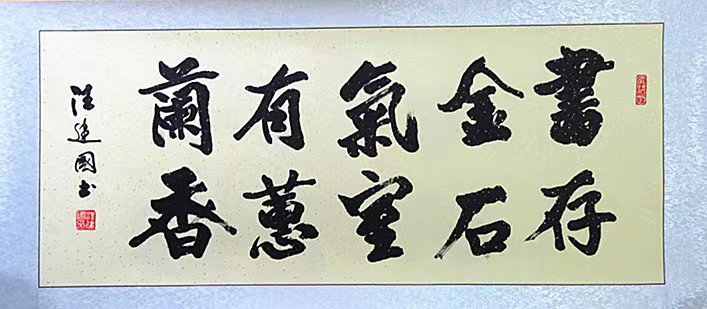 書存
金石
氣室
有蕙
蘭香
汪建國书